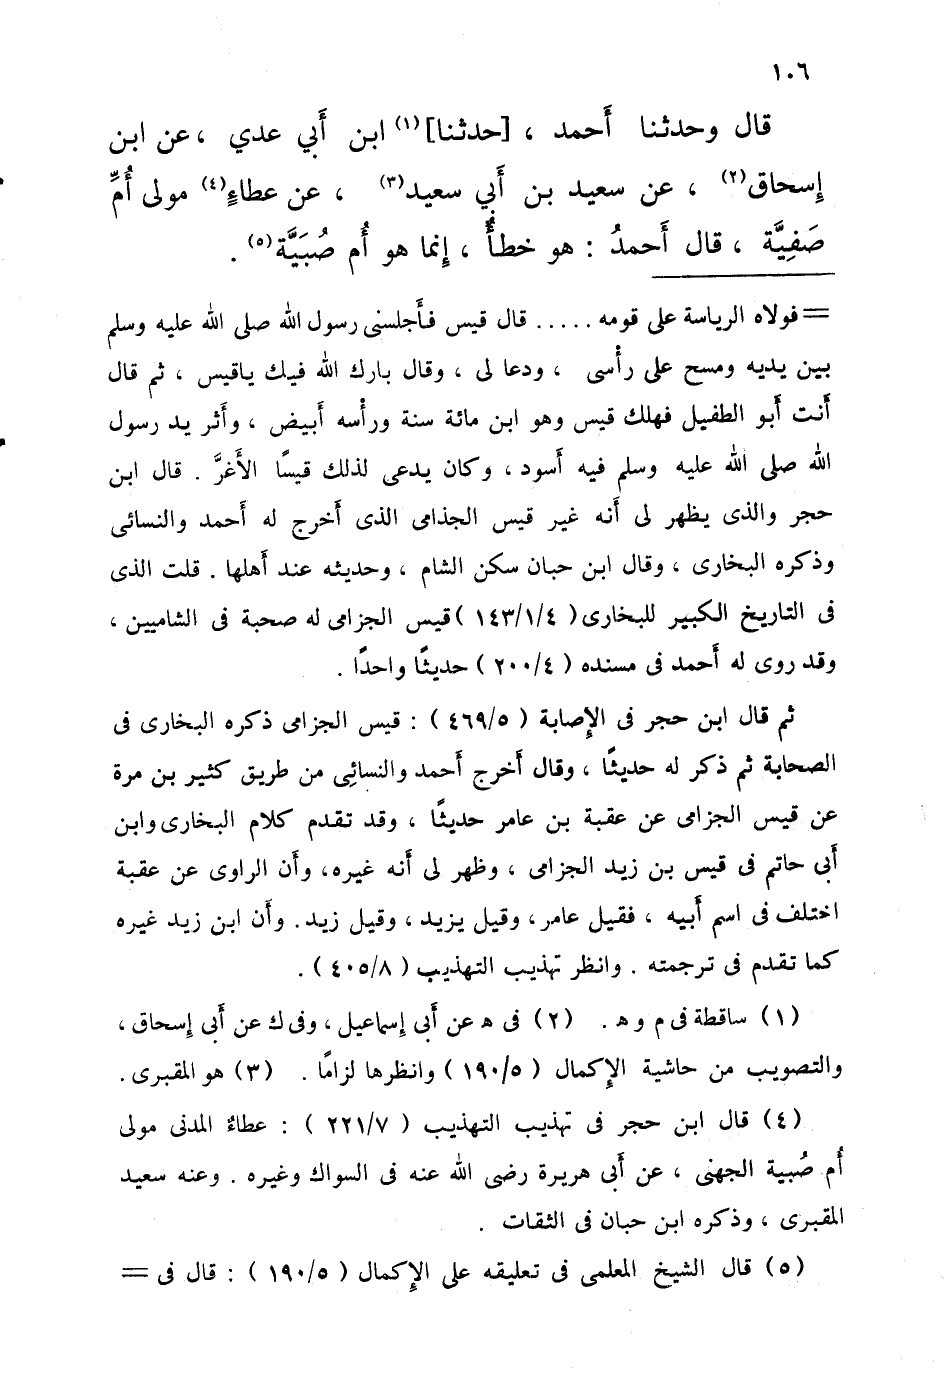 ١٠٦
قال وحدثنا أَحمد ، [حدثنا](١) ابن أَبي عدي ، عن ابن
إِسحاق(٢) ، عن سعيد بن أَبي سعيد(٣) ، عن عطاءٍ(٤) مولى أُمِّ
صَفِيَّة ، قال أَحمدُ : هو خطأٌ ، إِنما هو أُم صُبَيَّة(٥) .
= فولاه الرياسة على قومه ..... قال قيس فأَجلسنى رسول الله صلى الله عليه وسلم
بين يديه ومسح على رأْسى ، ودعا لى ، وقال بارك الله فيك ياقيس ، ثم قال
أَنت أَبو الطفيل فهلك قيس وهو ابن مائة سنة ورأْسه أَبيض ، وأَثر يد رسول
الله صلى الله عليه وسلم فيه أَسود ، وكان يدعى لذلك قيسًا الأَغرَّ . قال ابن
حجر والذى يظهر لى أَنه غير قيس الجذامى الذى أَخرج له أَحمد والنسائى
وذكره البخارى ، وقال ابن حبان سكن الشام ، وحديثه عند أَهلها . قلت الذى
فى التاريخ الكبير للبخارى ( ١٤٣/١/٤ ) قيس الجزامى له صحبة فى الشاميين ،
وقد روى له أَحمد فى مسنده ( ٢٠٠/٤ ) حديثًا واحدًا .
ثم قال ابن حجر فى الإِصابة ( ٤٦٩/٥ ) : قيس الجزامى ذكره البخارى فى
الصحابة ثم ذكر له حديثًا ، وقال أَخرج أَحمد والنسائِى من طريق كثير بن مرة
عن قيس الجزامى عن عقبة بن عامر حديثًا ، وقد تقدم كلام البخارى وابن
أَبى حاتم فى قيس بن زيد الجزامى ، وظهر لى أَنه غيره، وأَن الراوى عن عقبة
اختلف فى اسم أَبيه ، فقيل عامر، وقيل يزيد ، وقيل زيد. وأَن ابن زيد غيره
كما تقدم فى ترجمته . وانظر تهذيب التهذيب ( ٤٠٥/٨ ) .
(١) ساقطة فى م و ه . (٢) فى ه عن أَبى إِسماعيل ، وفى ك عن أَبى إِسحاق ،
والتصويب من حاشية الإِكمال ( ١٩٠/٥ ) وانظرها لزامًا . (٣) هو المقبرى .
(٤) قال ابن حجر فى تهذيب التهذيب ( ٢٢١/٧ ) : عطاءُ المدنى مولى
أُم صُبية الجهنى ، عن أَبى هريرة رضى الله عنه فى السواك وغيره . وعنه سعيد
المقبرى ، وذكره ابن حبان فى الثقات .
(٥) قال الشيخ المعلمى فى تعليقه على الإِكمال ( ١٩٠/٥ ) : قال فى =